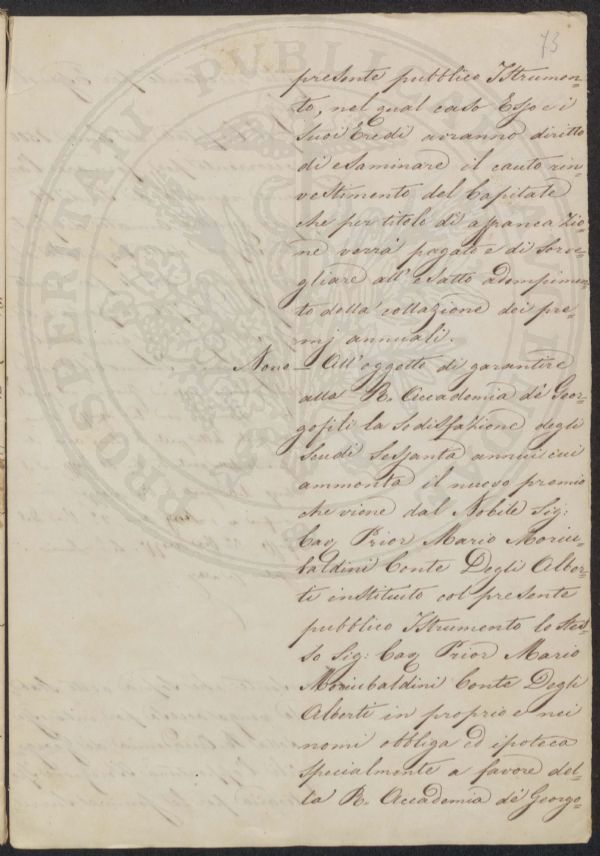 73
presente pubblico Istrumen-
to, nel qual caso Esso e i
suoi Eredi avranno diritto
di esaminare il cauto rin-
vestimento del Capitale
che per titolo di affrancazio-
ne verrà pagato e di sorve-
gliare all' esatto adempimen-
to della collazione dei pre-
mj annuali.
Nono = All' oggetto di garantire
alla R. Accademia dè Geor-
gofili la sodisfazione degli
scudi sessanta annui cui
ammonta il nuovo premio
che viene dal Nobile Sig:
Cav Prior Mario Moriu-
baldini Conte Degli Alber-
ti instituito col presente
pubblico Istrumento lo stes-
so Sig: Cav Prior Mario
Moriubaldini Conte Degli
Alberti in proprio e nei
nomi obbliga ed ipoteca
specialmente a favore del-
la R. Accademia dè Georgo-
PROSPERITATI PUBLICAE